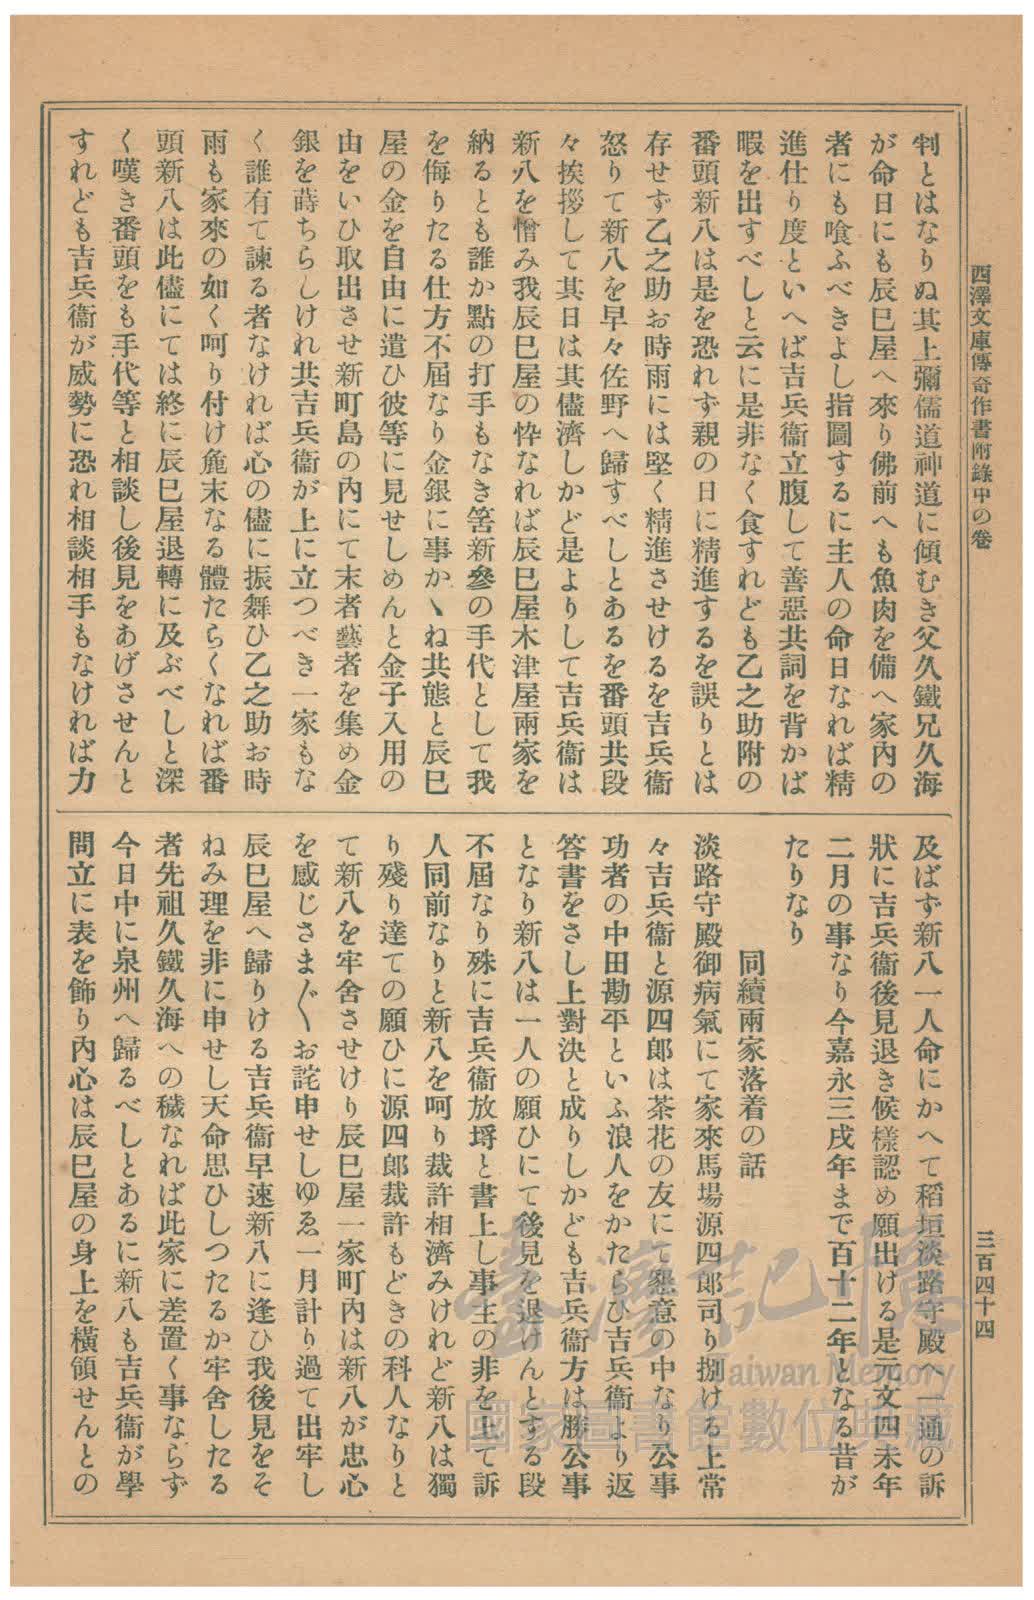 西澤文庫傳奇作書附錄中の卷
三百四十四
判とはなりぬ其上彌儒道神道に傾むき父久鐵兄久海
が命日にも辰巳屋へ來り佛前へも魚肉を備へ家內の
者にも喰ふべきよし指圖するに主人の命日なれば精
進仕り度といへば吉兵衞立腹して善惡共詞を背かば
暇を出すべしと云に是非なく食すれども乙之助附の
番頭新八は是を恐れず親の日に精進するを誤りとは
存せず乙之助お時雨には堅く精進させけるを吉兵衞
怒りて新八を早々佐野へ歸すべしとあるを番頭共段
々挨拶して其日は其儘濟しかど是よりして吉兵衞は
新八を憎み我辰巳屋の忰なれば辰巳屋木津屋兩家を
納るとも誰か點の打手もなき筈新參の手代として我
を侮りたる仕方不屆なり金銀に事かゝね共態と辰巳
屋の金を自由に遣ひ彼等に見せしめんと金子入用の
由をいひ取出させ新町島の內にて末者藝者を集め金
銀を蒔ちらしけれ共吉兵衞が上に立つべき一家もな
く誰有て諫る者なければ心の儘に振舞ひ乙之助お時
雨も家來の如く呵り付け麁末なる體たらくなれば番
頭新八は此儘にては終に辰巳屋退轉に及ぶべしと深
く嘆き番頭をも手代等と相談し後見をあげさせんと
すれども吉兵衞が威勢に恐れ相談相手もなければ力
及ばず新八一人命にかへて稻垣淡路守殿へ一通の訴
狀に吉兵衞後見退き候樣認め願出ける是元文四未年
二月の事なり今嘉永三戌年まで百十二年となる昔が
たりなり
同續兩家落着の話
淡路守殿御病氣にて家來馬場源四郎司り捌ける上常
々吉兵衞と源四郎は茶花の友にて懇意の中なり公事
功者の中田勘平といふ浪人をかたらひ吉兵衞より返
答書をさし上對決と成りしかども吉兵衞方は勝公事
となり新八は一人の願ひにて後見を退けんとする段
不屆なり殊に吉兵衞放埒と書上し事主の非を上て訴
人同前なりと新八を呵り裁許相濟みけれど新八は獨
り殘り達ての願ひに源四郎裁許もどきの科人なりと
て新八を牢舍させけり辰巳屋一家町內は新八が忠心
を感じさま〴〵お詫申せしゆゑ一月計り過て出牢し
辰巳屋へ歸りける吉兵衞早速新八に逢ひ我後見をそ
ねみ理を非に申せし天命思ひしつたるか牢舍したる
者先祖久鐵久海への穢なれば此家に差置く事ならず
今日中に泉州へ歸るべしとあるに新八も吉兵衞が學
問立に表を飾り內心は辰巳屋の身上を橫領せんとの
臺灣記憶
Taiwan Memory
國家圖書館數位典藏